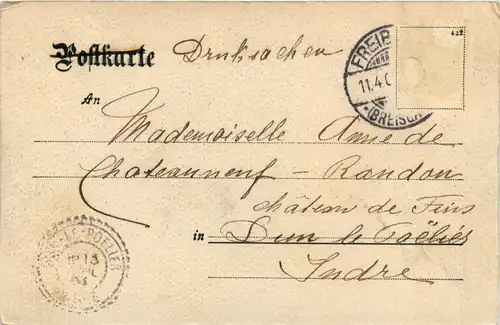 Postkarte Drucksachen
432
FREIB
11.4.0
(BREISG
An
Mademoiselle Anne de
Chateauneuf - Randon
château de Fins
in Dun le Poëlier
Indre
LE-POELIER
13